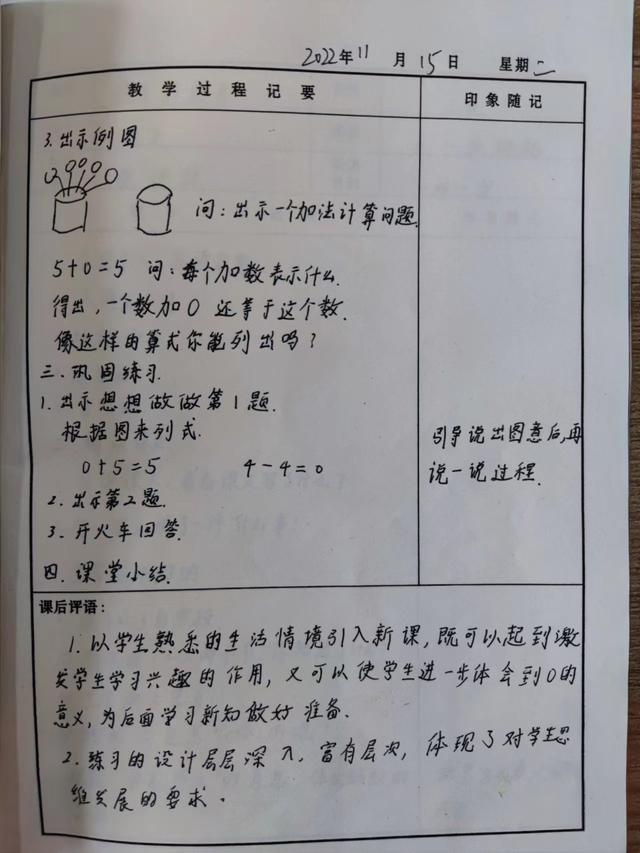 2022年11月15日 星期二
教学过程记要 印象随记
3.出示例图
问:出示一个加法计算问题.
5+0=5 问:每个加数表示什么.
得出,一个数加0还等于这个数.
像这样的算式你能列出吗?
三.巩固练习.
1.出示想想做做第1题.
根据图来列式.
0+5=5 4-4=0
2.出示第2题.
3.开火车回答.
四.课堂小结.
引导说出图意后,再
说一说过程.
课后评语:
1.以学生熟悉的生活情境引入新课,既可以起到激
发学生学习兴趣的作用,又可以使学生进一步体会到0的
意义,为后面学习新知做好准备.
2.练习的设计层层深入,富有层次,体现了对学生思
维发展的要求.